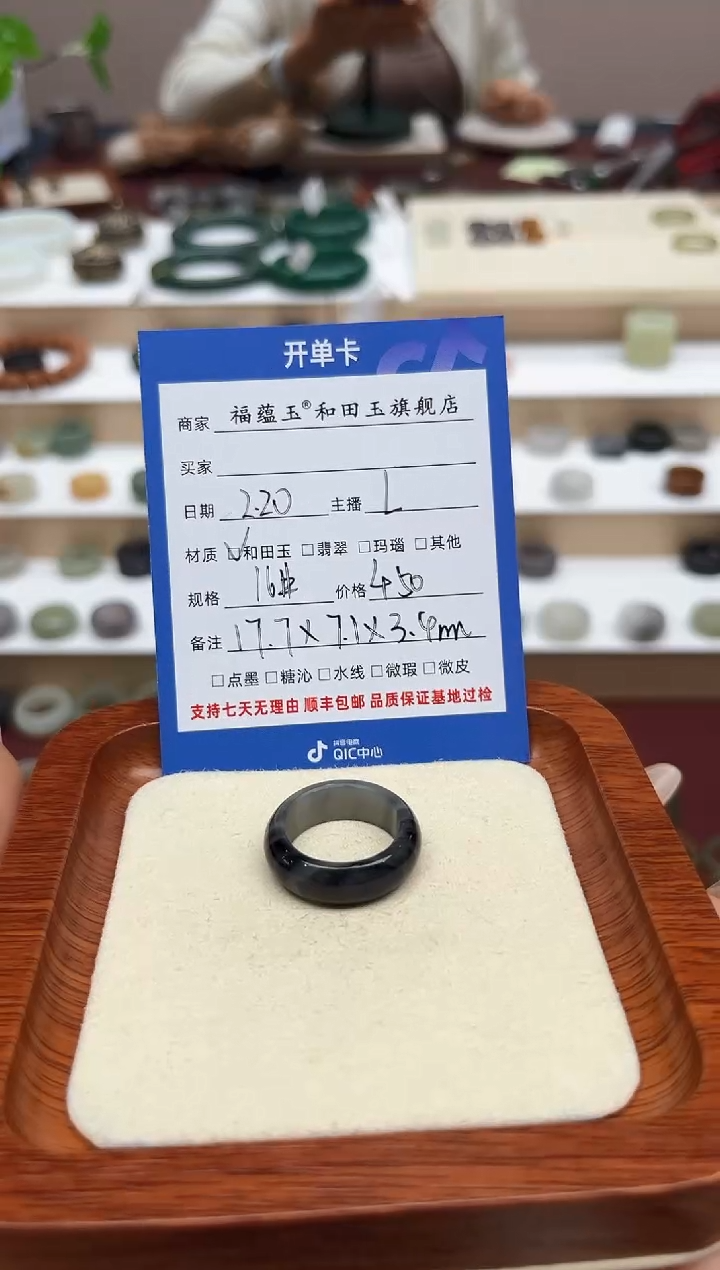 开单卡
商家 福蕴玉®和田玉旗舰店
买家
日期 2.20 主播 L
材质 ☑和田玉 □翡翠 □玛瑙 □其他
规格 16# 价格 450
备注 17.7×7.1×3.4mm
□点墨 □糖沁 □水线 □微瑕 □微皮
支持七天无理由 顺丰包邮 品质保证基地过检
抖音电商
QIC中心